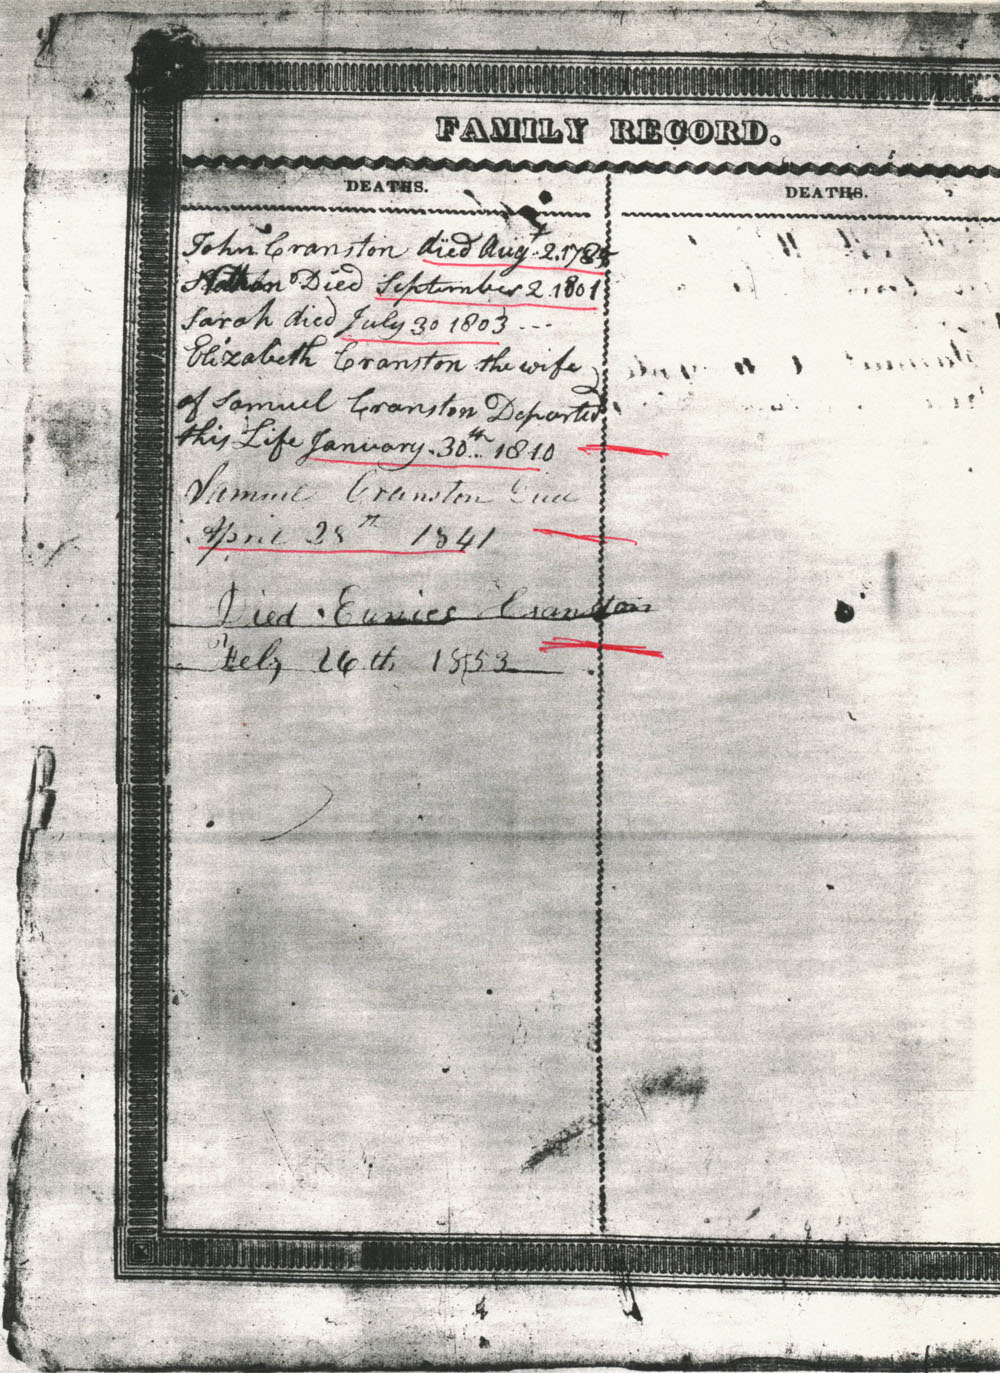 FAMILY RECORD.
DEATHS.
DEATHS.
John Cranston died Augt 2. 1784
Nathan Died September 2. 1801
Sarah died July 30 1803 ---
Elizabeth Cranston the wife
of Samuel Cranston Departed
this Life January. 30th 1810
Samuel Cranston Died
April 28th 1841
Died Eunice Cranston
Feb 26th 1853